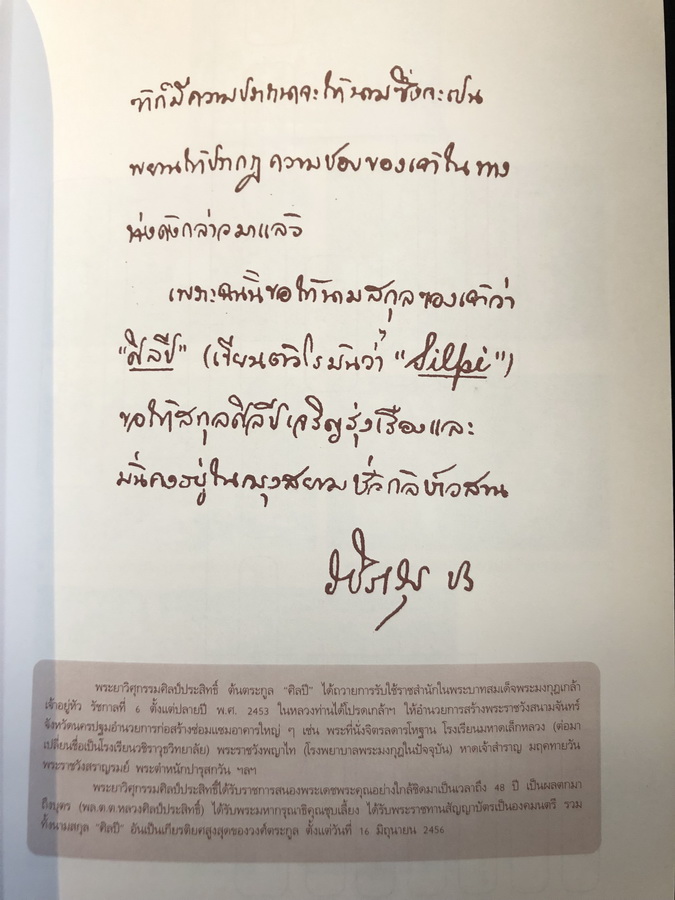 ฑิก็มีความปรารถนาจะให้นามซึ่งจะเปน
พยานให้ปรากฏ ความชอบของเจ้าในทาง
ดังกล่าวมาแล้ว
เพราะฉนั้นขอให้นามสกุลของเจ้าว่า
"ศิลปี" (เขียนตัวโรมันว่า "Silpi")
ขอให้สกุลศิลปีเจริญรุ่งเรืองและ
มั่นคงอยู่ในกรุงสยามชั่วกัลปาวสาน
วชิราวุธ ปร
พระยาวิศุกรรมศิลป์ประสิทธิ์ ต้นตระกูล "ศิลปี" ได้ถวายการรับใช้ราชสำนักในพระบาทสมเด็จพระมงกุฎเกล้า
เจ้าอยู่หัว รัชกาลที่ 6 ตั้งแต่ปลายปี พ.ศ. 2453 ในหลวงท่านได้โปรดเกล้าฯ ให้อำนวยการสร้างพระราชวังสนามจันทร์
จังหวัดนครปฐมอำนวยการก่อสร้างซ่อมแซมอาคารใหญ่ ๆ เช่น พระที่นั่งจิตรลดารโหฐาน โรงเรียนมหาดเล็กหลวง (ต่อมา
เปลี่ยนชื่อเป็นโรงเรียนวชิราวุธวิทยาลัย) พระราชวังพญาไท (โรงพยาบาลพระมงกุฎในปัจจุบัน) หาดเจ้าสำราญ มฤคทายวัน
พระราชวังสราญรมย์ พระตำหนักปารุสกวัน ฯลฯ
พระยาวิศุกรรมศิลป์ประสิทธิ์ได้รับราชการสนองพระเดชพระคุณอย่างใกล้ชิดมาเป็นเวลาถึง 48 ปี เป็นผลตกมา
ถึงบุตร (พล.ต.ต.หลวงศิลป์ประสิทธิ์) ได้รับพระมหากรุณาธิคุณชุบเลี้ยง ได้รับพระราชทานสัญญาบัตรเป็นองคมนตรี รวม
ทั้งนามสกุล "ศิลปี" อันเป็นเกียรติยศสูงสุดของวงศ์ตระกูล ตั้งแต่วันที่ 16 มิถุนายน 2456